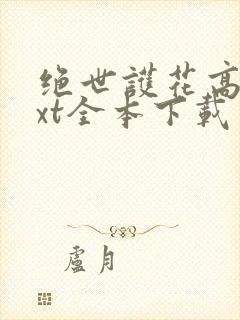 绝世護花高
xt全本下載
盧月